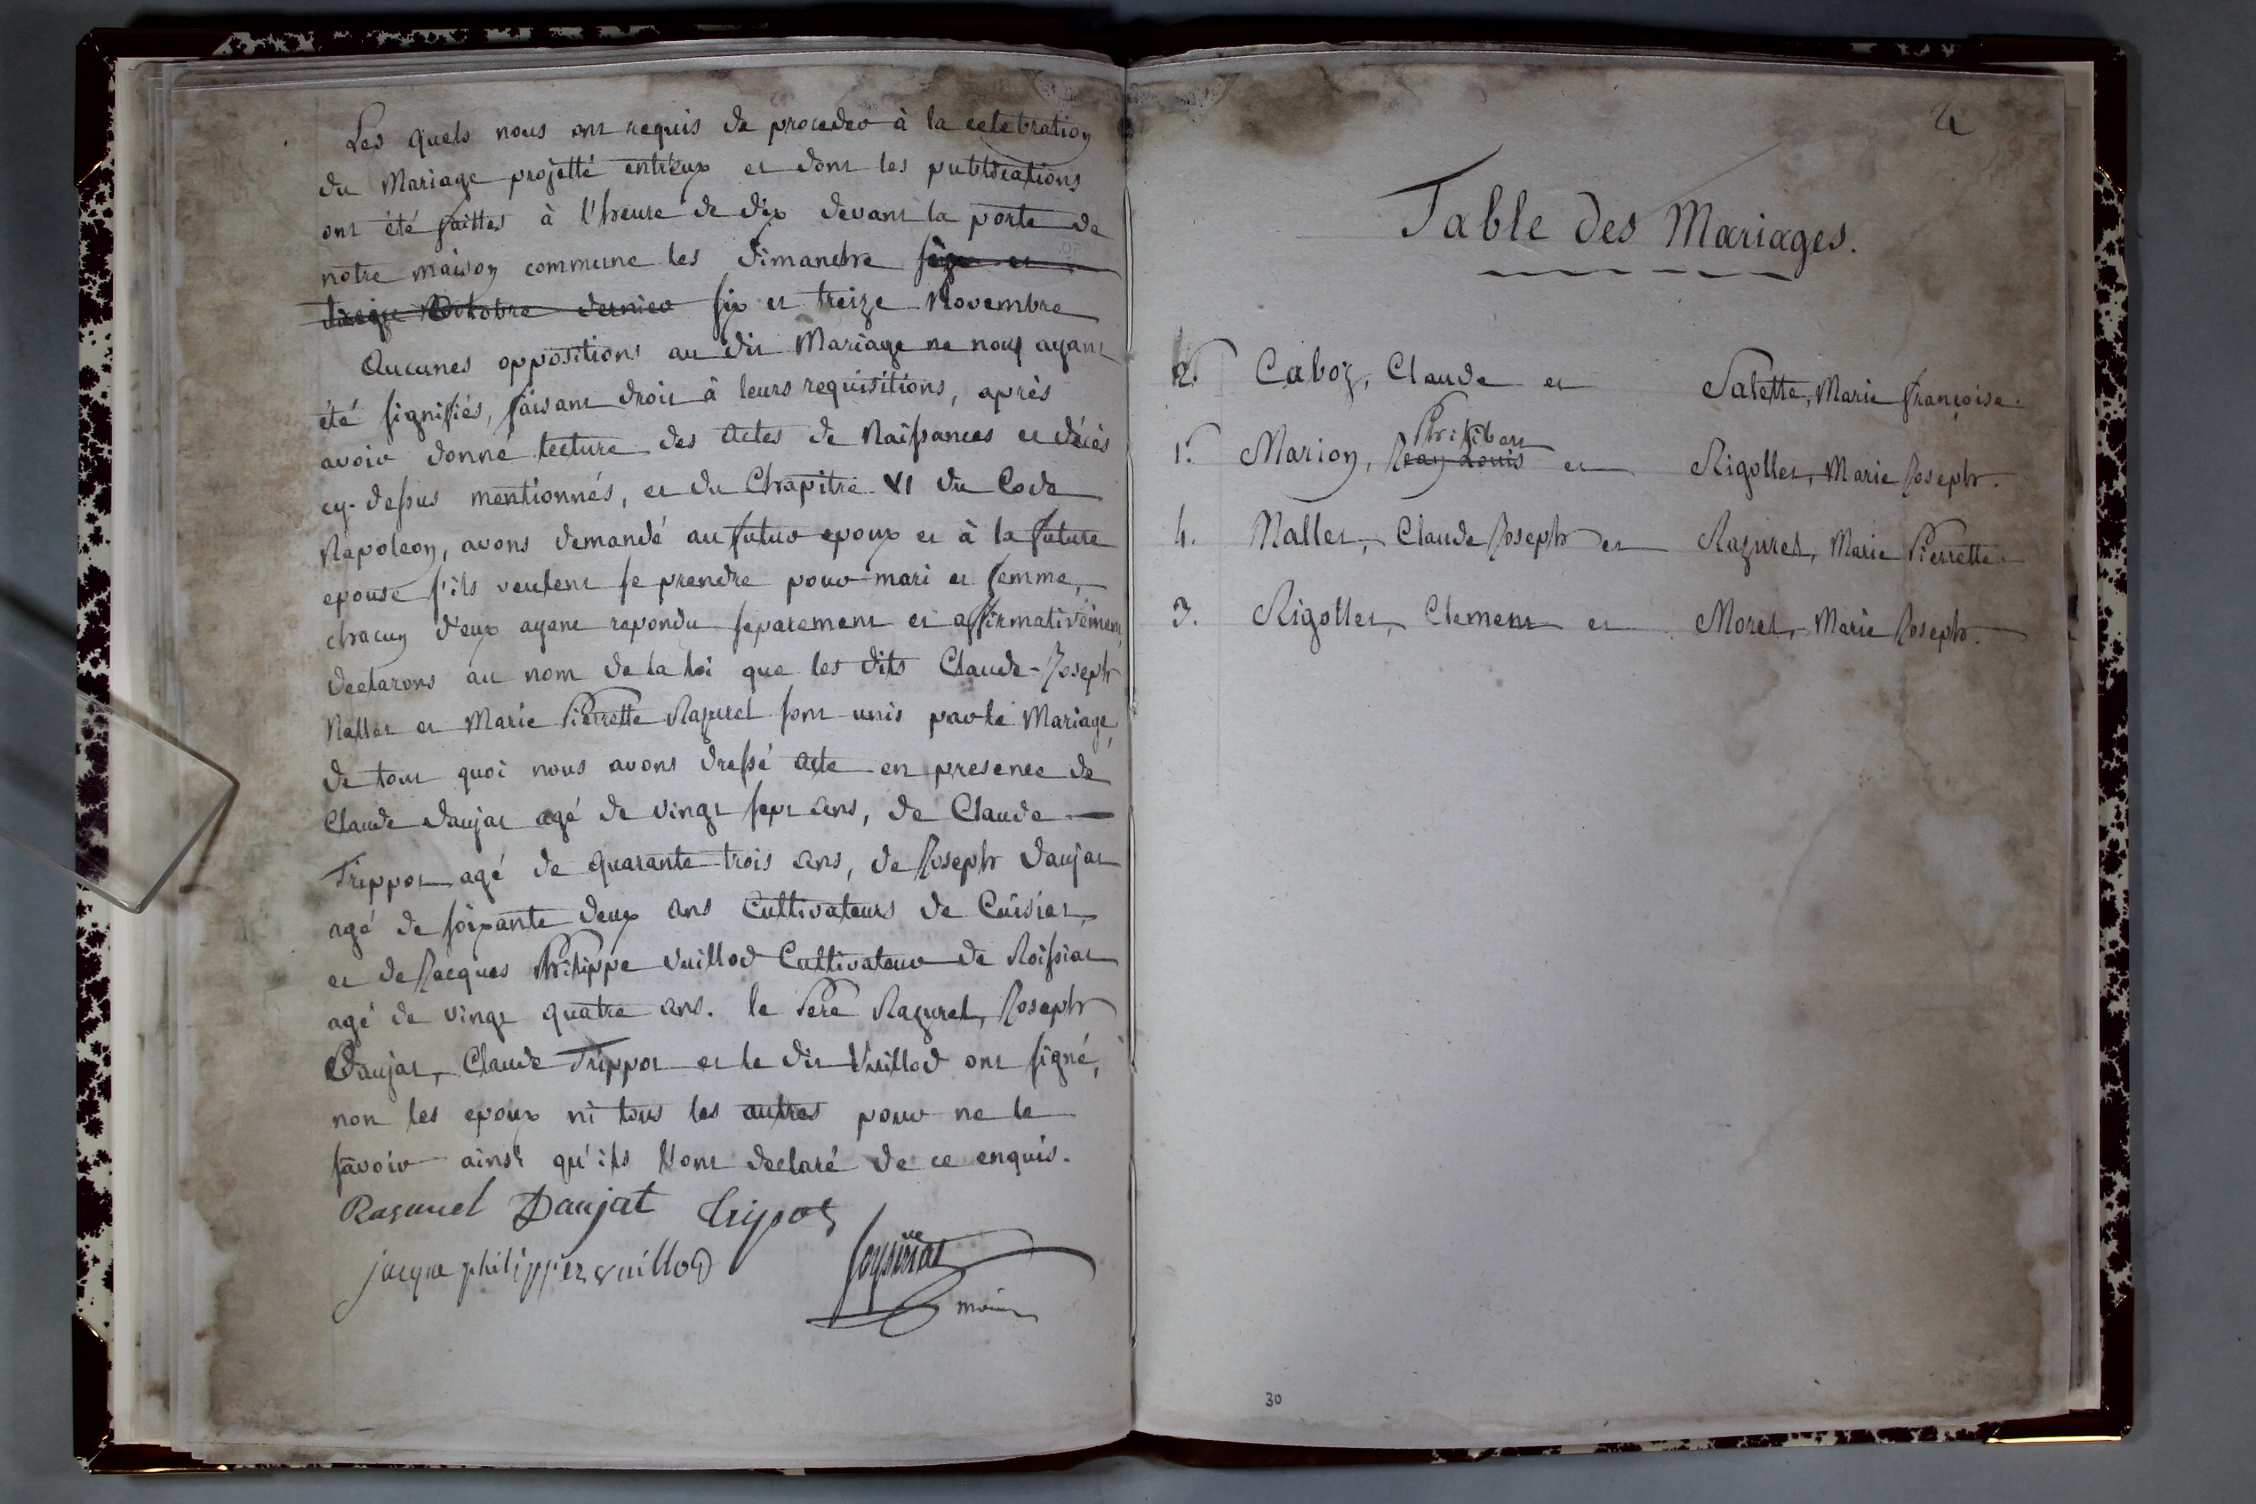 Les quels nous ont requis de proceder à la celebration
du Mariage projetté entr'eux et dont les publications
ont été faittes à l'heure de dix devant la porte de
notre maison commune les dimanche seize et
treize Octobre dernier six et treize Novembre
Aucunes oppositions au dit Mariage ne nous ayant
été signifiés, faisant droit à leurs requisitions, après
avoir donné lecture des actes de Naissances et décès
cy-dessus mentionnés, et du Chapitre VI du Code
Napoleon, avons demandé au futur epoux et à la future
epouse s'ils veulent se prendre pour mari et femme,
chacun d'eux ayant repondu separement et affirmativement
declarons au nom de la loi que les dits Claude-Joseph
Nallet et Marie Pierrette Razurel sont unis par le Mariage,
de tout quoi nous avons dressé acte en presence de
Claude Daujat agé de vingt sept ans, de Claude
Trippot agé de quarante trois ans, de Joseph Daujat
agé de soixante deux ans Cultivateurs de Cuisiat,
et de Jacques Philippe Vuillod Cultivateur de Roissiat
agé de vingt quatre ans. le Pere Razurel, Joseph
Daujat, Claude Trippot et le dit Vuillod ont signé,
non les epoux ni tous les autres pour ne le
savoir ainsi qu'ils l'ont declaré de ce enquis.
Rasurel Daujat tripot
jacque philippe vuillod
maire
Table des Mariages.
2. Caboz, Claude et Salette, Marie françoise.
Philibert
1. Marion, Jean Louis et Rigollet, Marie Joseph.
4. Nallet, Claude Joseph et Razurel, Marie Pierrette
3. Rigollet, Clement et Morel, Marie Joseph.
30